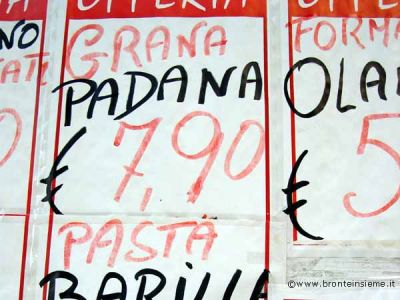 OFFERTA
GRANA
PADANA
€ 7,90
PASTA
BARILLA
NO
TATI
0
FORMA
OLA
€ 5
© www.bronteinsieme.it